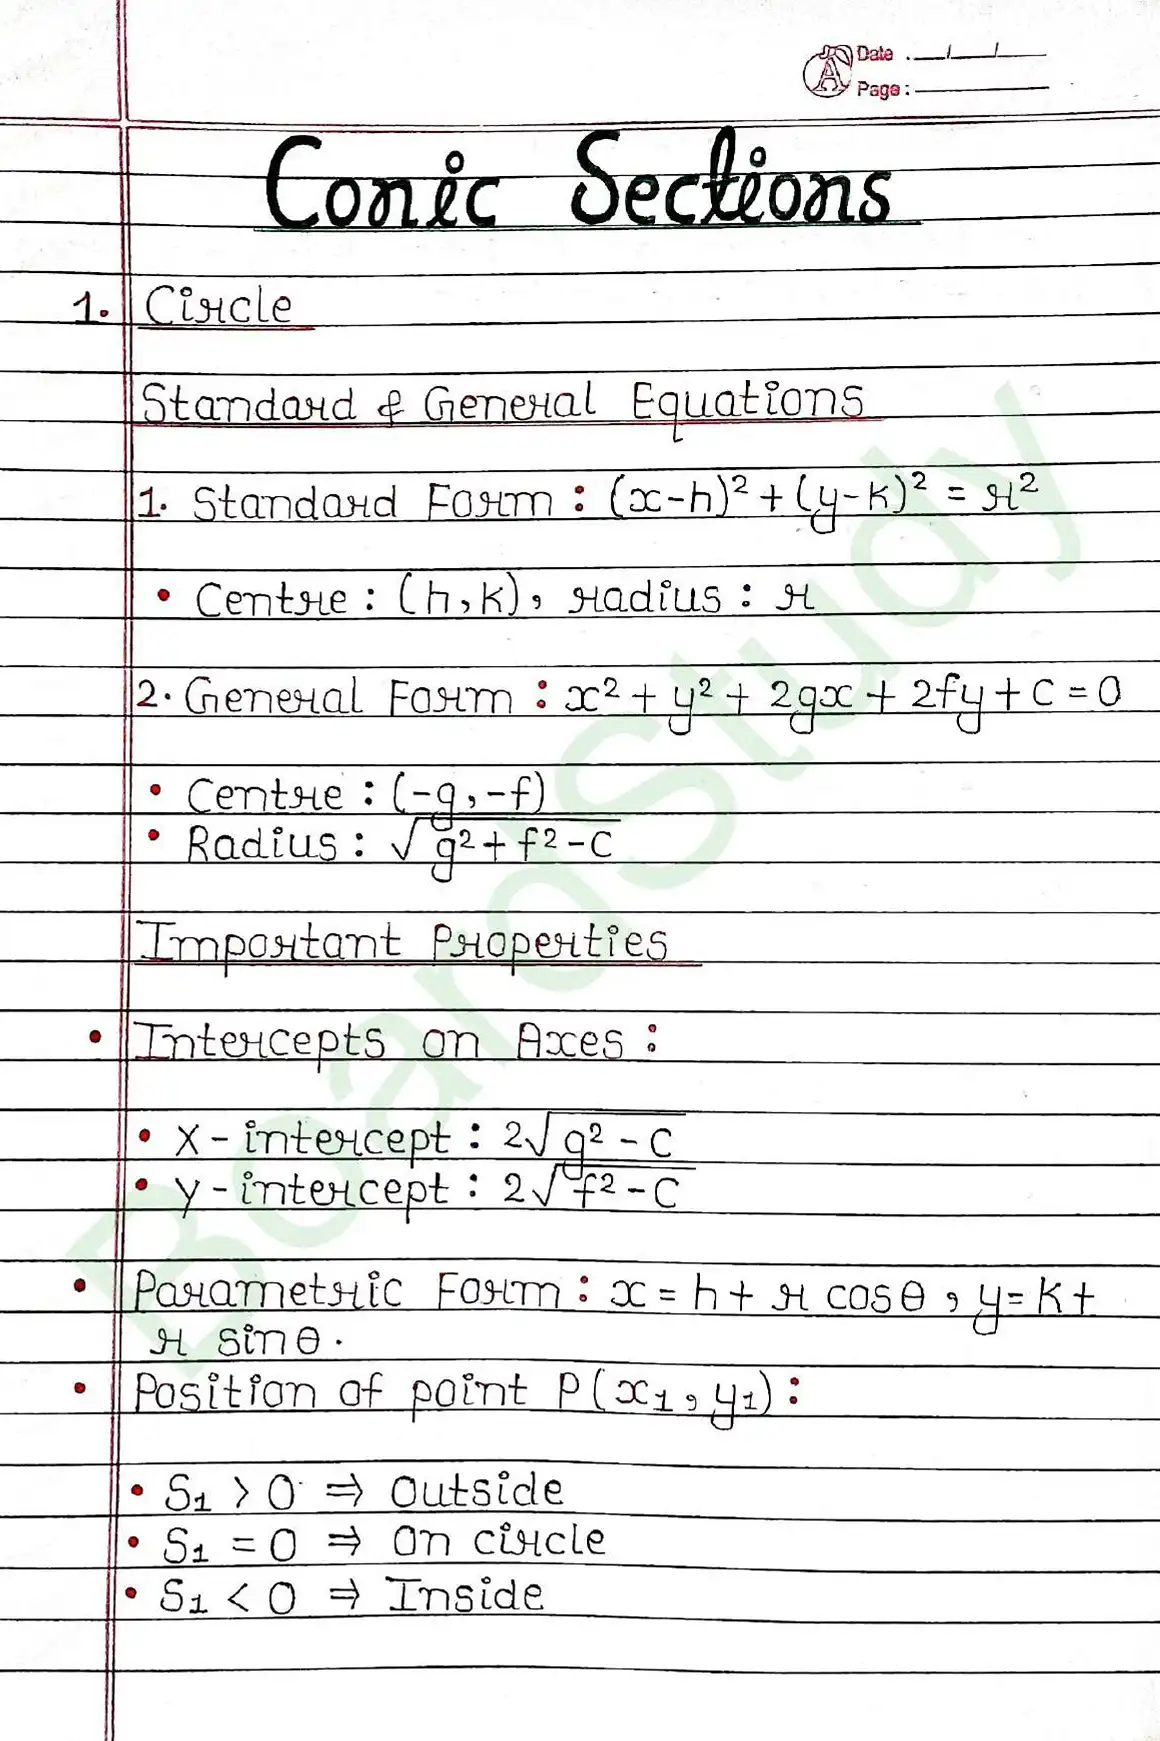 Date : __/__/__
Page :
Conic Sections
1. Circle
Standard & General Equations
1. Standard Form : (x-h)² + (y-k)² = r²
• Centre : (h, k), radius : r
2. General Form : x² + y² + 2gx + 2fy + c = 0
• Centre : (-g, -f)
• Radius : √g² + f² - c
Important Properties
• Intercepts on Axes :
• X - intercept : 2√g² - c
• y - intercept : 2√f² - c
• Parametric Form : x = h + r cosθ, y = k +
r sinθ.
• Position of point P(x₁, y₁) :
• S₁ > 0 ⇒ Outside
• S₁ = 0 ⇒ On circle
• S₁ < 0 ⇒ Inside
BoardStudy